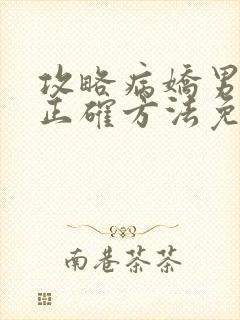 攻略病嬌男
正確方法免
南巷茶茶